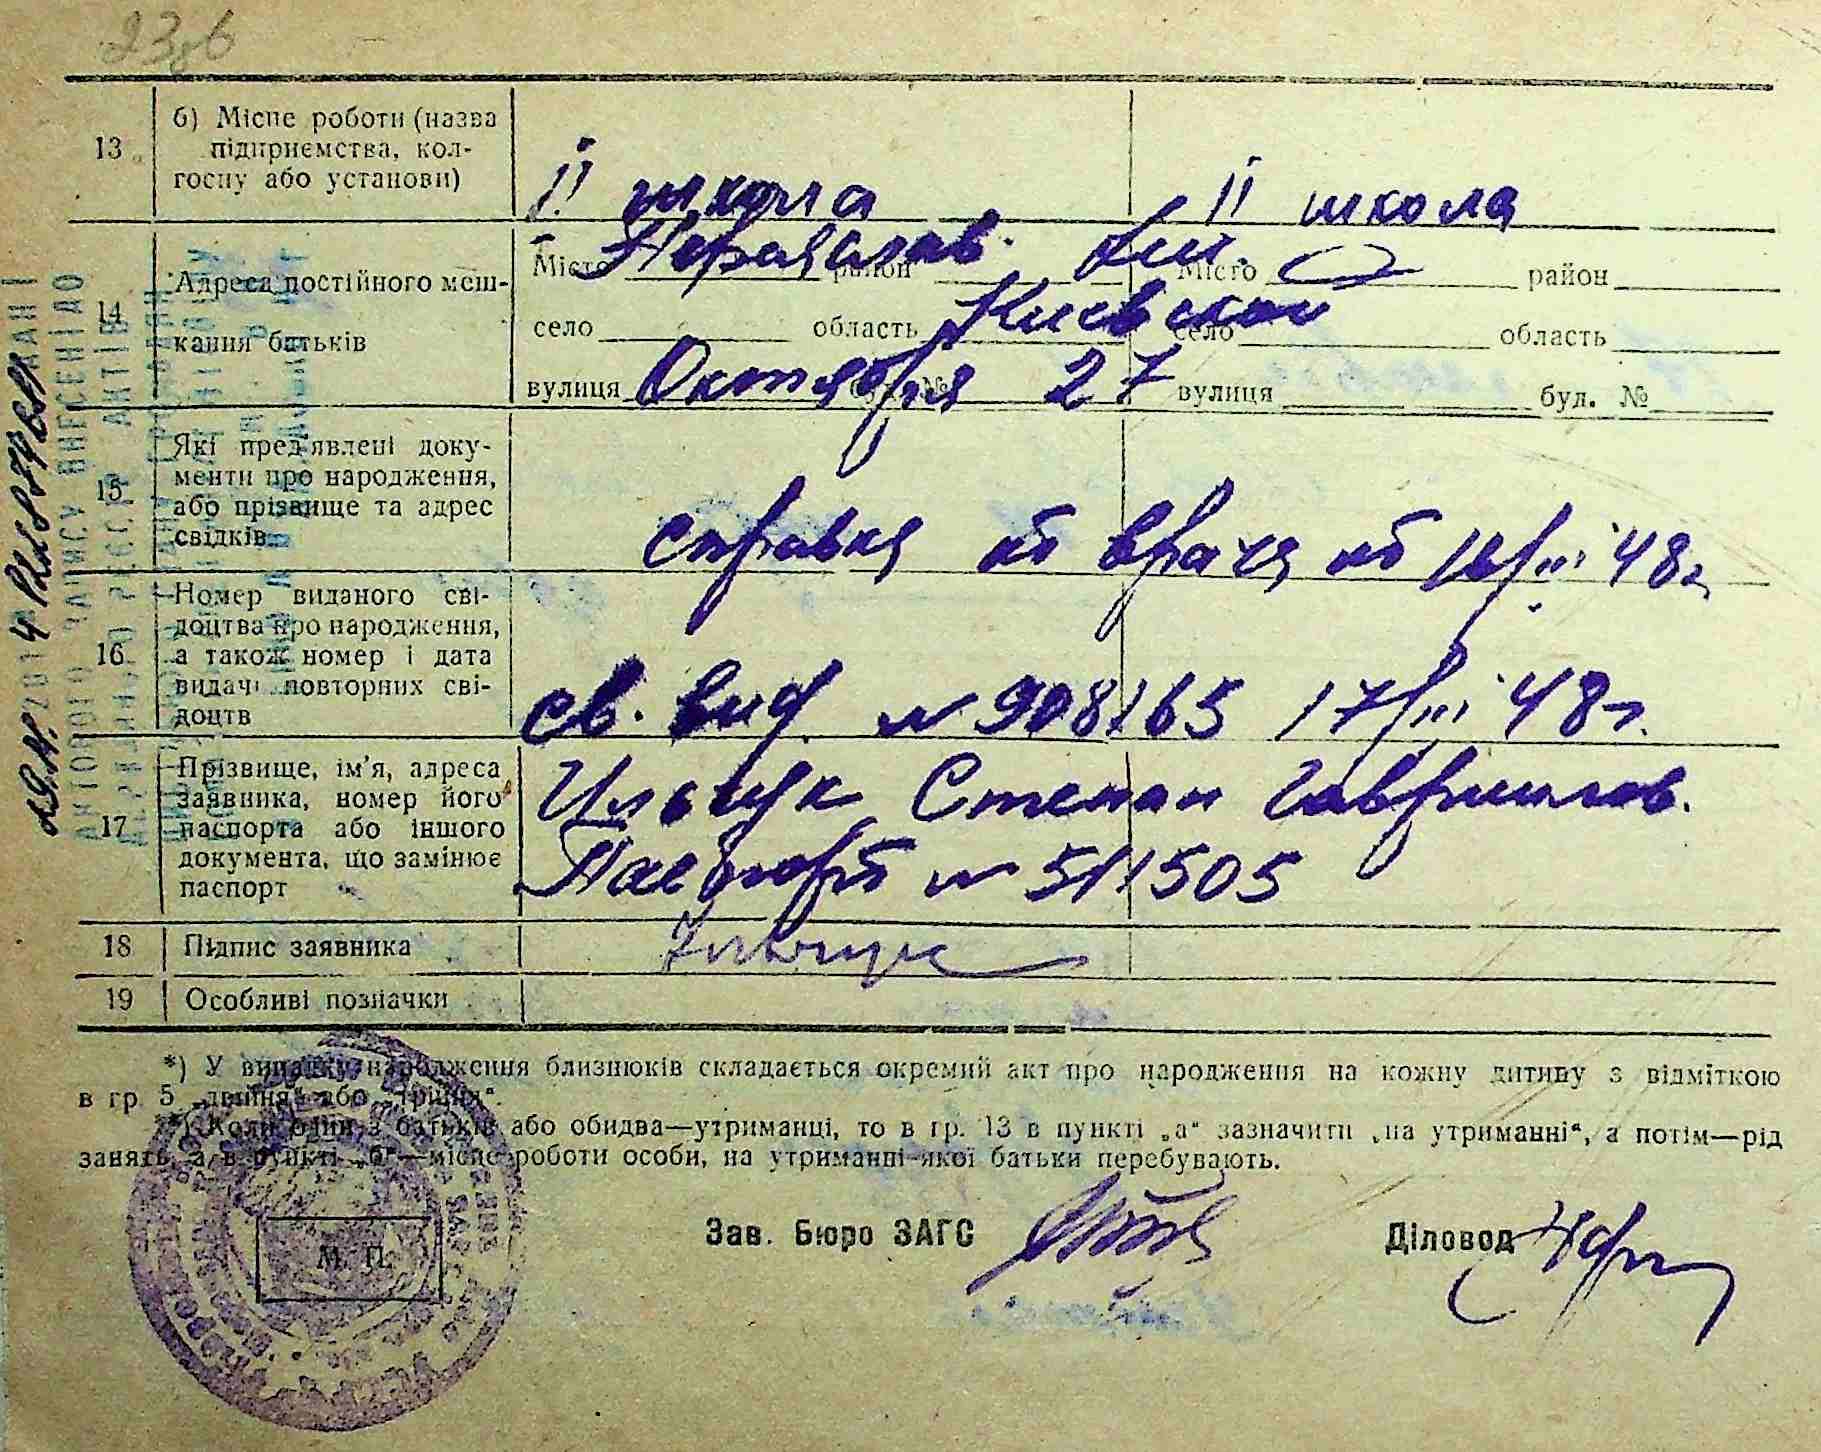 13 б) Місце роботи (назва
підприємства, кол-
госпу або установи)
II школа II школа
14 Адреса постійного меш-
кання батьків
Місто Переяслав. район Хм. Місто район
село область Киевской село область
вулиця Октября буд. № 27 вулиця буд. №
15 Які пред'явлені доку-
менти про народження,
або прізвище та адрес
свідків
справка от врача от 16/III 48г
16 Номер виданого сві-
доцтва про народження,
а також номер і дата
видачі повторних сві-
доцтв
св. выд. № 908165 17/III 48г.
17 Прізвище, ім'я, адреса
заявника, номер його
паспорта або іншого
документа, що замінює
паспорт
Ильчук Степан Гаврилов.
Паспорт № 511505
18 Підпис заявника Ильчук
19 Особливі позначки
*) У випадку народження близнюків складається окремий акт про народження на кожну дитину з відміткою
в гр. 5 „двійня“ або „трійня“.
**) Коли один з батьків або обидва—утриманці, то в гр. 13 в пункті „а“ зазначити „на утриманні“, а потім—рід
занять, а в пункті „б“—місце роботи особи, на утриманні якої батьки перебувають.
М. П.
Зав. Бюро ЗАГС Діловод